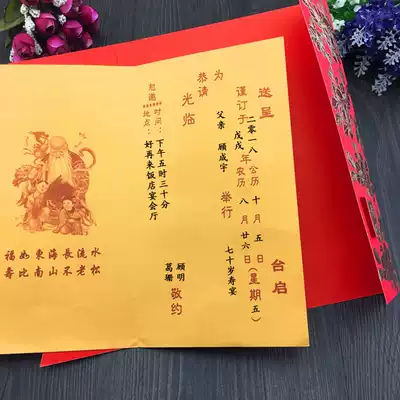 送呈 台启
谨订于二零一八年公历 十 月 五 日(星期 五)
戊戌 农历 八 月 廿六
为 父亲 顾成宇 举行 七十岁寿宴
恭请
光临
顾明
葛珊 敬约
恕邀
时间：下午五时三十分
地点：好再来饭店宴会厅
福如東海長流水
寿比南山不老松